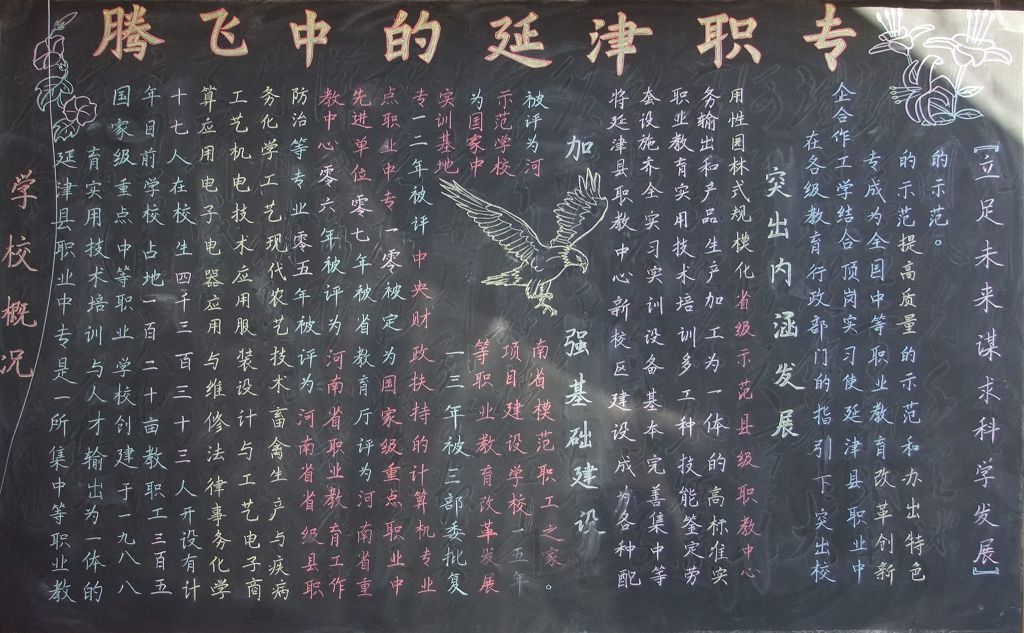 腾飞中的延津职专
学校概况
延津县职业中专是一所集中等职业教
育实用技术培训与人才输出为一体的
国家级重点中等职业学校创建于一九八八
年目前学校占地一百二十亩教职工三百五
十七人在校生四千三百三十三人开设有计
算应用电子电器应用与维修法律事务化学
工艺机电技术应用服装设计与工艺电子商
务化学工艺现代农艺技术畜禽生产与疾病
防治等专业零五年被评为河南省省级县职
教中心零六年被评为河南省职业教育工作
先进单位零七年被省教育厅评为河南省重
点职业中专一零被定为国家级重点职业中
专一二年被评中央财政扶持的计算机专业
实训基地一三年被三部委批复
为国家中等职业教育改革发展
示范学校项目建设学校一五年
被评为河南省模范职工之家。
加强基础建设
将延津县职教中心新校区建设成为各种配
套设施齐全实习实训设备基本完善集中等
职业教育实用技术培训多工种技能签定劳
务输出和产品生产加工为一体的高标准实
用性园林式规模化省级示范县级职教中心
突出内涵发展
在各级教育行政部门的指引下突出校
企合作工学结合顶岗实习使延津县职业中
专成为全国中等职业教育改革创新
的示范提高质量的示范和办出特色
的示范。
『立足未来谋求科学发展』